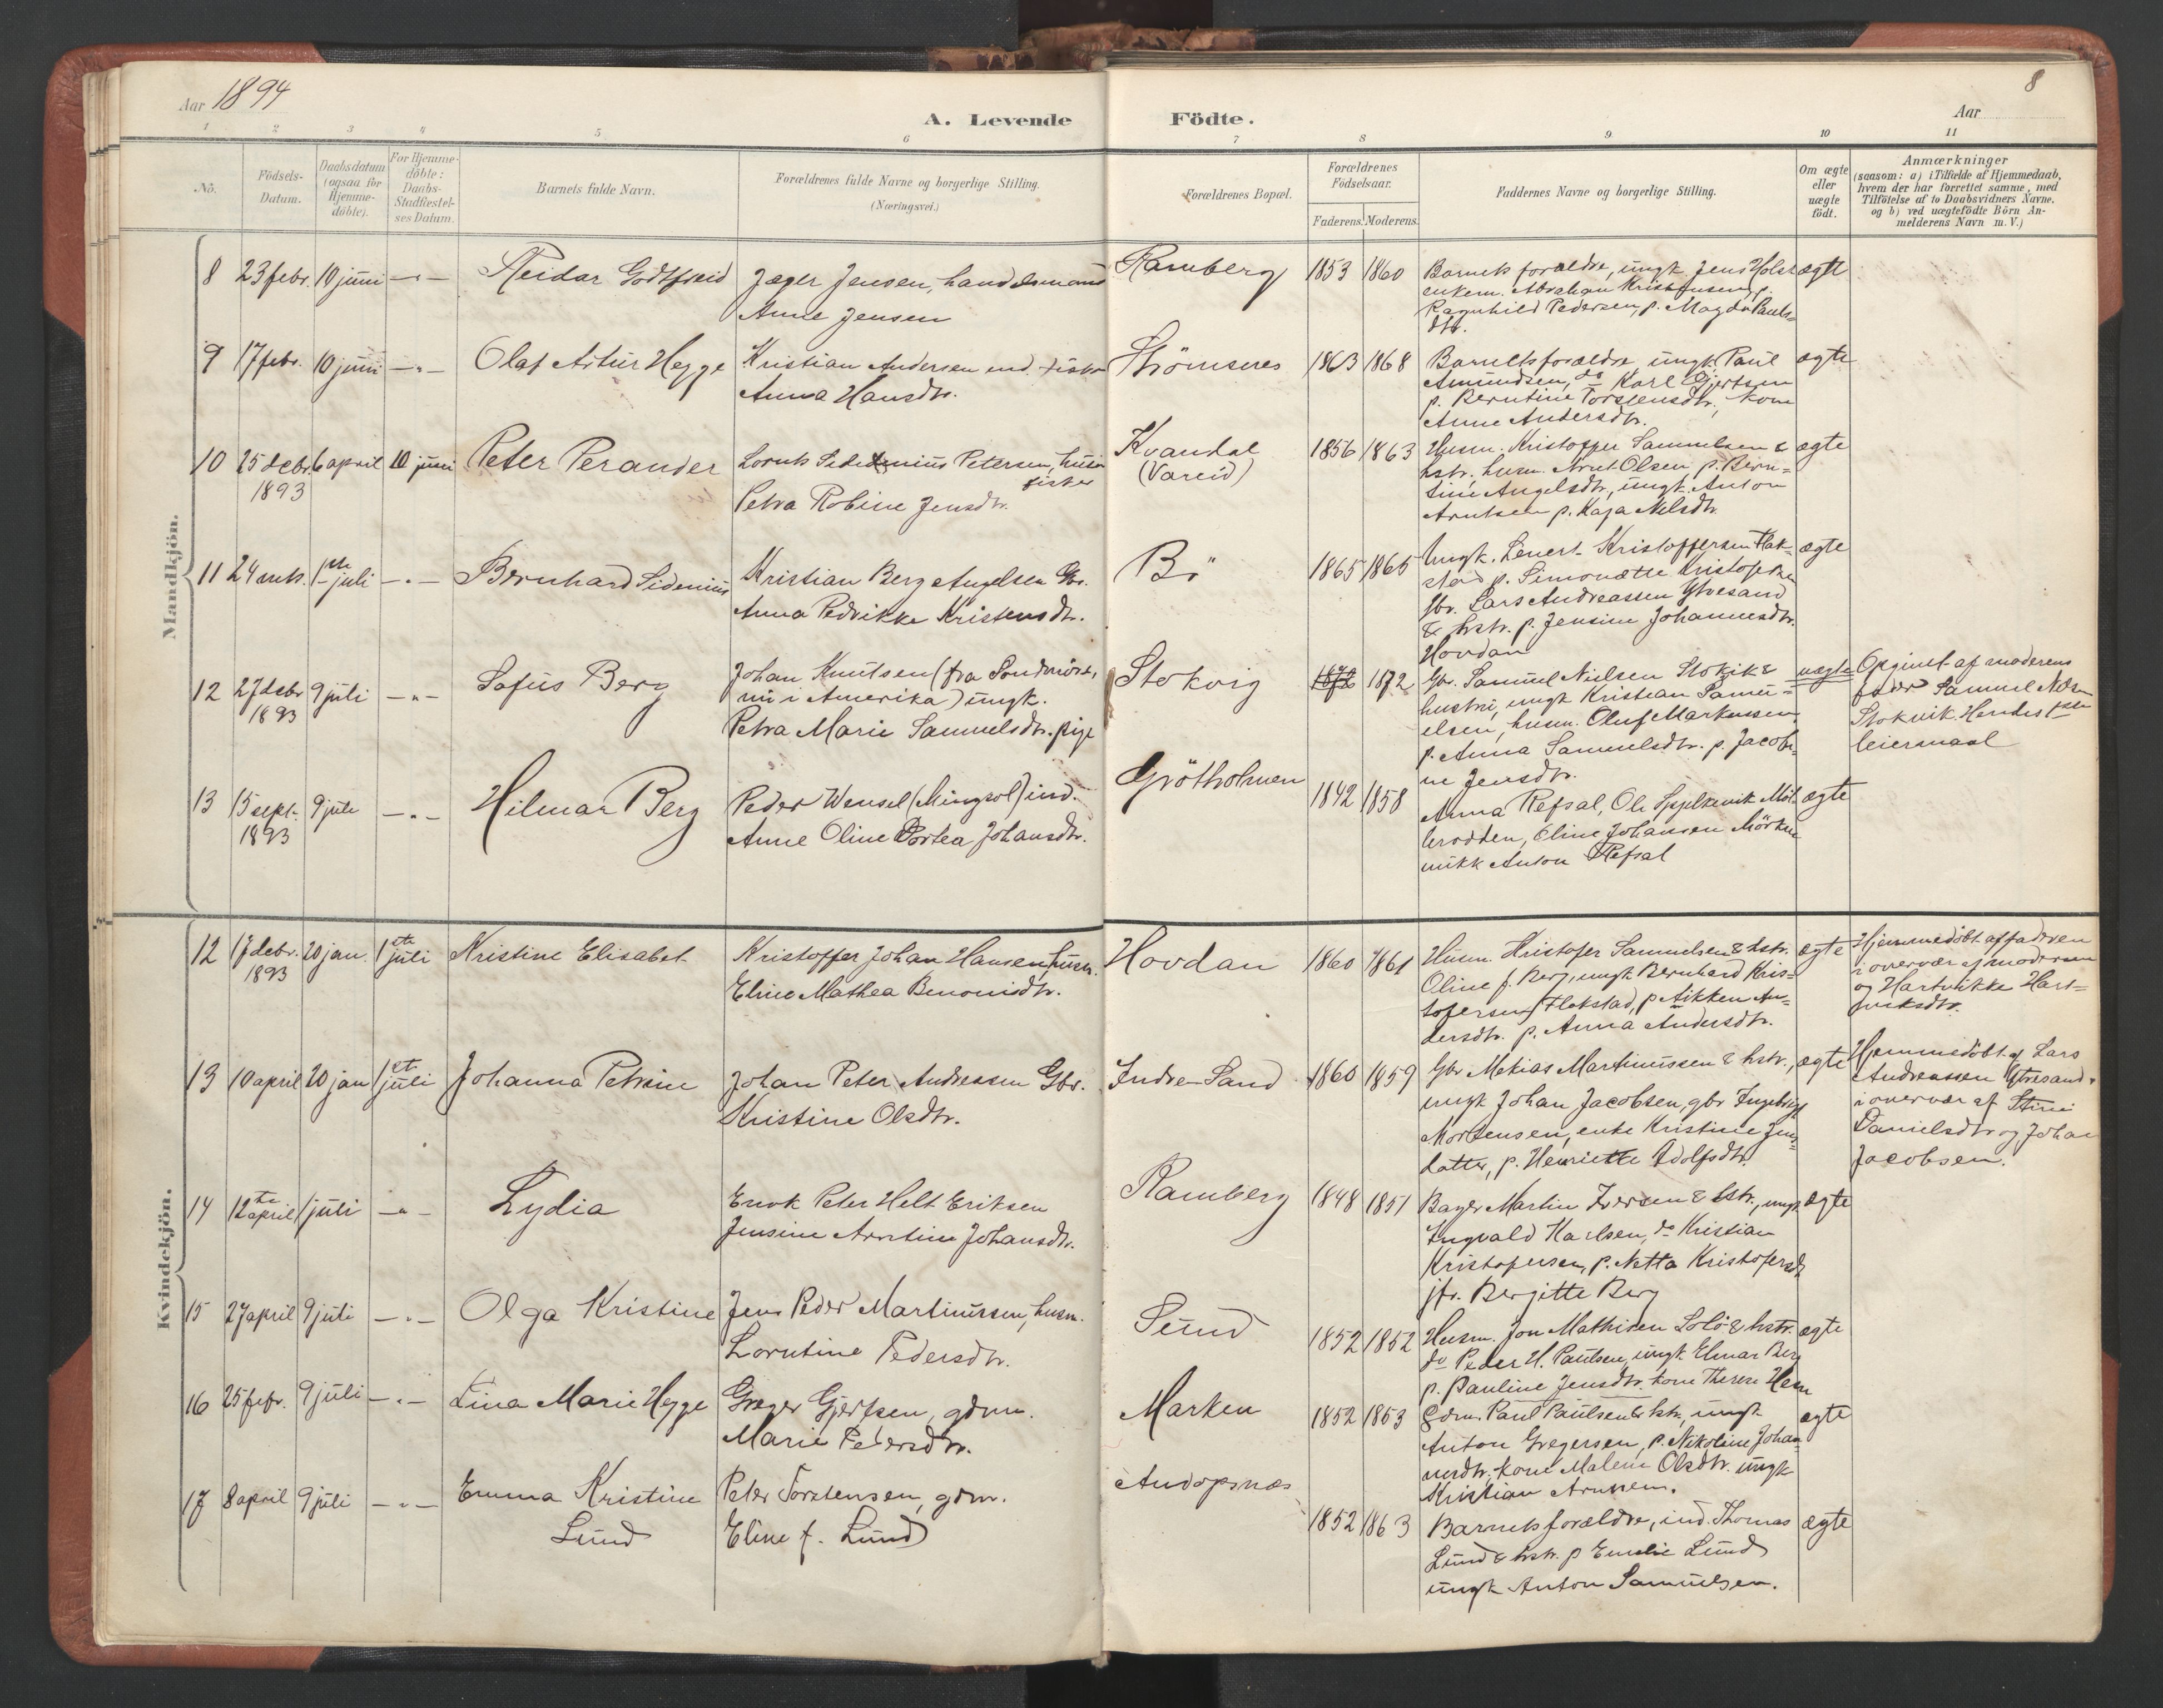 Aar 1894
A. Levende
Födte.
Aar
8
1 2 3 4 5 6 7 8 9 10 11
No.
Födsels-
Datum.
Daabsdatum
(ogsaa for
Hjemme-
döbte).
For Hjemme-
döbte:
Daabs-
Stadfæstel-
ses Datum.
Barnets fulde Navn.
Forældrenes fulde Navne og borgerlige Stilling.
(Næringsvei.)
Forældrenes Bopæl.
Forældrenes
Födselsaar.
Faderens. Moderens.
Faddernes Navne og borgerlige Stilling.
Om ægte
eller
uægte
födt.
Anmærkninger
(saasom: a) i Tilfælde af Hjemmedaab,
hvem der har forrettet samme, med
Tilföielse af to Daabsvidners Navne.
og b) ved uægtefödte Börn An-
melderens Navn m. V.)
Mandkjön.
8 23 febr. 10 juni -"- Reidar Godtfred
Jæger Jensen, handelsmand
Anne Jensen
Ramberg 1853 1860
Barnets forældre, ungk. Jens Holst
enkem. Abraham Kristensen, p.
Ragnhild Pedersen, p. Magda Pauls=
dtr.
ægte
9 17 febr. 10 juni -"- Olaf Artur Hegge
Kristian Andersen ind. fisker
Anna Hansdtr.
Strömsnes 1863 1868
Barnets forældre ungk. Paul
Amundsen, do Karl Gjertsen
p. Berntine Torstensdtr., kone
Anne Andersdtr.
ægte
10 25 debr. 6 april 10 juni Peter Perander
1893
Petersen, husm
fisker
Petra Robine Jensdtr.
Kvandal
(Vareid)
1856 1863
Husm. Kristoffer Samuelsen &
hstr., husm. Arnt Olsen, p. Bern=
tine Angelsdtr., ungk. Anton
Arntsen p. Kaja Nilsdtr.
ægte
11 24 mts. 1ste juli -"- Bernhard Sidenius
Kristian Berg Angelsen Gbr.
Anna Pedrikke Kristensdtr.
Bö 1865 1865
Ungk. Lenert Kristoffersen Flak=
stad p. Simonette Kristofersen
Gbr. Lars Andreassen Ytresand
& hstr. p. Jensine Johannesdtr.
Hovdan
ægte
12 27 debr 9 juli -"- Sofus Berg
1893
Johan Knutsen (fra Söndmöre,
nu i Amerika) ungk.
Petra Marie Samuelsdtr. pige
Stokvig 1872 1872
Gbr. Samuel Nielsen Stokvik &
hustru, ungk Kristian Samu=
elsen, husm. Oluf Markussen,
p. Anna Samuelsdtr. p. Jacobi=
ne Jensdtr.
uægte
Opgivet af moderens
fader Samuel Nilsen
Stokvik. Hendes 1ste
leiermaal
13 15 sept. 9 juli -"- Hilmar Berg
1893
Peder Wensel (Mingsol) ind.
Anne Oline Dortea Johansdtr.
Grötholmen 1842 1858
Anna Refsal, Ole Spjelkevik Möl=
lerodden, Oline Johansen
Anton Refsal
ægte
Kvindekjön.
12 17 debr. 20 jan. 1ste juli Kristine Elisabet
1893
Kristoffer Johan Hansen, husm.
Eline Mathea Benonisdtr.
Hovdan 1860 1861
Husm. Kristofer Samuelsen & hstr.
Oline f. Berg, ungk Bernhard Kris=
tofersen Flakstad, p. Aikken An=
dersdtr. p. Anna Andersdtr.
ægte
Hjemmedöbt af faderen
i overvær af moderen
og Hartvikke Hart=
viksdtr.
13 10 april 20 jan 1ste juli Johanna Petrine
Johan Peter Andreasen Gbr.
Kristine Olsdtr.
Indre-Sand 1860 1859
Gbr Mekias Martinussen & hstr.,
ungk Johan Jacobsen, gbr Ingebrigt
Mortensen, enke Kristine Jens=
datter, p. Henriette Adolfsdtr.
ægte
Hjemmedöbt af Lars
Andreassen Ytresand
i overvær af Stine
Danielsdtr og Johan
Jacobsen.
14 12te april 1 juli -"- Lydia
Enok Peter Helt Eriksen
Jensine Arntine Johansdtr.
Ramberg 1848 1851
Bager Martin Iversen & hstr., ungk
Ingvald Karlsen, do Kristian
Kristofersen, p. Netta Kristofersdtr
jfr. Bergitte Berg
ægte
15 27 april 9 juli -"- Olga Kristine
Jens Peder Martinussen, husm.
Lorntine Pedersdtr.
Sund 1852 1852
Husm. Jon Mathisen Solö & hstr.
do Peder H. Paulsen, ungk Elmar Berg
p. Pauline Jensdtr. kone Therese
ægte
16 25 febr. 9 juli -"- Lina Marie Hegge
Greger Gjertsen, gdm.
Marie Pedersdtr.
Marken 1852 1853
Gdm. Paul Paulsen & hstr, ungk
Anton Gregersen, p. Nikoline Johan=
nesdtr, kone Malene Olsdtr. ungk
Kristian Arntsen.
ægte
17 8 april 9 juli -"- Emma Kristine
Lund
Peter Torstensen, gdm.
Eline f. Lund
Andopsnæs 1852 1863
Barnets forældre, ind. Thomas
Lund & hstr. p Emelie Lund
ungk Anton Samuelsen.
ægte